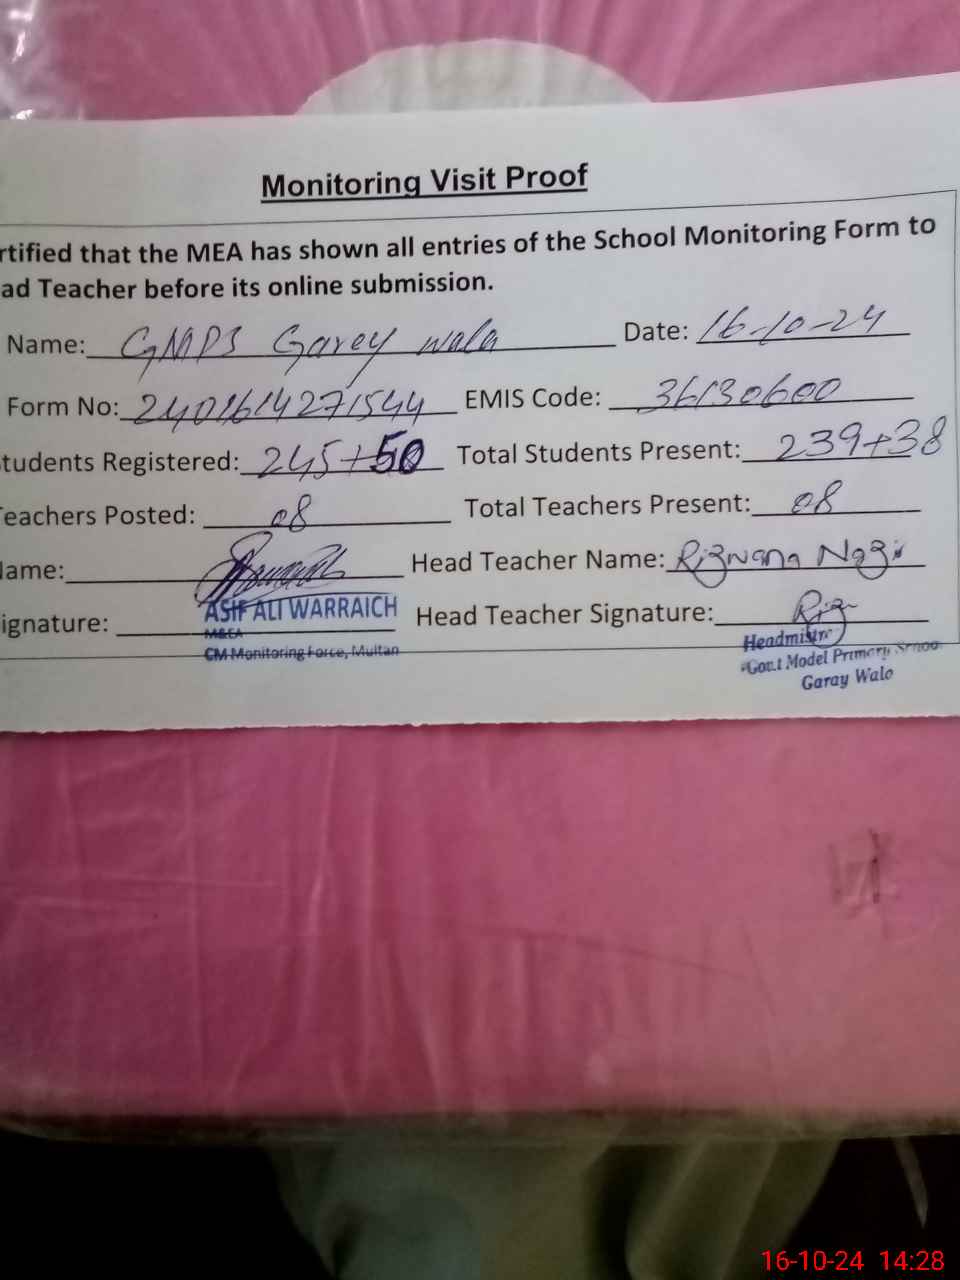 Monitoring Visit Proof
rtified that the MEA has shown all entries of the School Monitoring Form to
ad Teacher before its online submission.
Name: GMPS Garey wala Date: 16-10-24
Form No: 2401614271544 EMIS Code: 36130600
tudents Registered: 245+50 Total Students Present: 239+38
eachers Posted: 08 Total Teachers Present: 08
ame: Head Teacher Name: Rizwana Nazir
ignature: ASIF ALI WARRAICH Head Teacher Signature: Riz
M&EA
CM Monitoring Force, Multan
Headmistre
Gov.t Model Primary School
Garay Wale
16-10-24 14:28